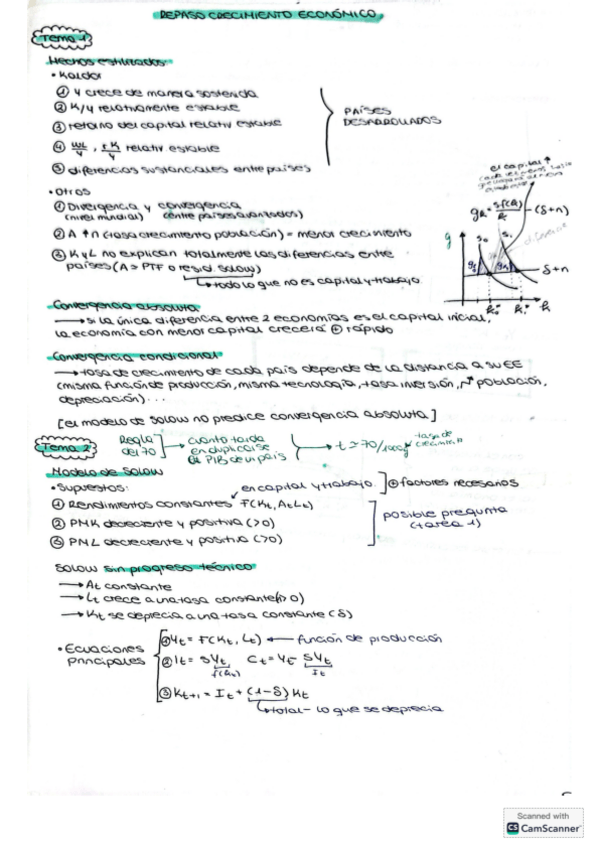 REPASO CRECIMIENTO ECONÓMICO
Tema 1
Hechos estilizados
• Kaldor
① Y crece de manera sostenida
② K/Y relativamente estable
③ retorno del capital relativ estable
④ wL/Y, rK/Y relativ estable
⑤ diferencias sustanciales entre países
PAÍSES DESARROLLADOS
• Otros
① Divergencia y convergencia
(nivel mundial) (entre países avanzados)
② A ↑n (tasa crecimiento población) = menor crecimiento
③ K y L no explican totalmente las diferencias entre
países (A = PTF o resid. Solow)
↳ todo lo que no es capital y trabajo
el capital ↑
gk = sf(k)/k - (δ+n)
g
δ+n
k
Convergencia absoluta
→ si la única diferencia entre 2 economías es el capital inicial,
la economía con menor capital crecerá ⊕ rápido
Convergencia condicional
→ tasa de crecimiento de cada país depende de la distancia a su EE
(misma función de producción, misma tecnología, tasa inversión, población,
depreciación)...
[el modelo de Solow no predice convergencia absoluta]
Tema 2
Regla del 70 → cuanto tarda en duplicarse el PIB de un país → t ≃ 70/100g tasa de
Modelo de Solow
• Supuestos: en capital y trabajo ⊕ factores necesarios
① Rendimientos constantes F(Kt, AtLt)
② PMK decreciente y positiva (>0)
③ PML decreciente y positiva (>0)
posible pregunta
(tarea 1)
Solow sin progreso técnico
→ At constante
→ Lt crece a una tasa constante (n>0)
→ Kt se deprecia a una tasa constante (δ)
• Ecuaciones principales
① Yt = F(Kt, Lt) ← función de producción
② It = sYt Ct = Yt - sYt
f(kt) It
③ Kt+1 = It + (1-δ)Kt
↳ total - lo que se deprecia
Scanned with
CS CamScanner